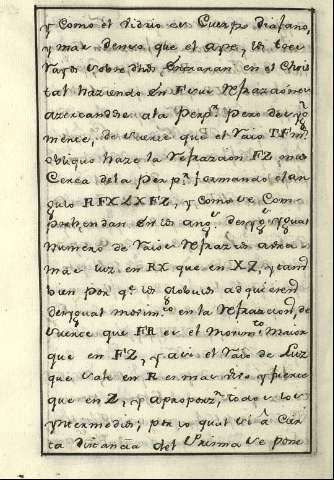 y como el Vidrio es Cuerpo Diafano,
y mas denso, que el ayre, los tres
rayos sobre dhos, entraran en el Chris
tal haziendo en F sus refraziones
azercandose a la Perpr. pero desygl
mente, de suerte que el raio TF mas
obliquo haze la refrazion FZ, mas
Cerca dela perpr. formando el an
gulo RFX < XFZ, y como se Com
prehendan en los angs. desygs. ygual
numero de raios refrazs. abra
mas luz en RX que en XZ, y tam
bien por qe. los Globulos adquieren
desygual movimto. en la refraccion, de
suerte que FR es el movimto. maior
que en FZ, y asi el raio de Luz
que sale en R es mas vivo y fuerte
que en Z, y a proporzn. todos los
yntermedios; por lo qual si a Cier
ta distancia del Prisma se pone